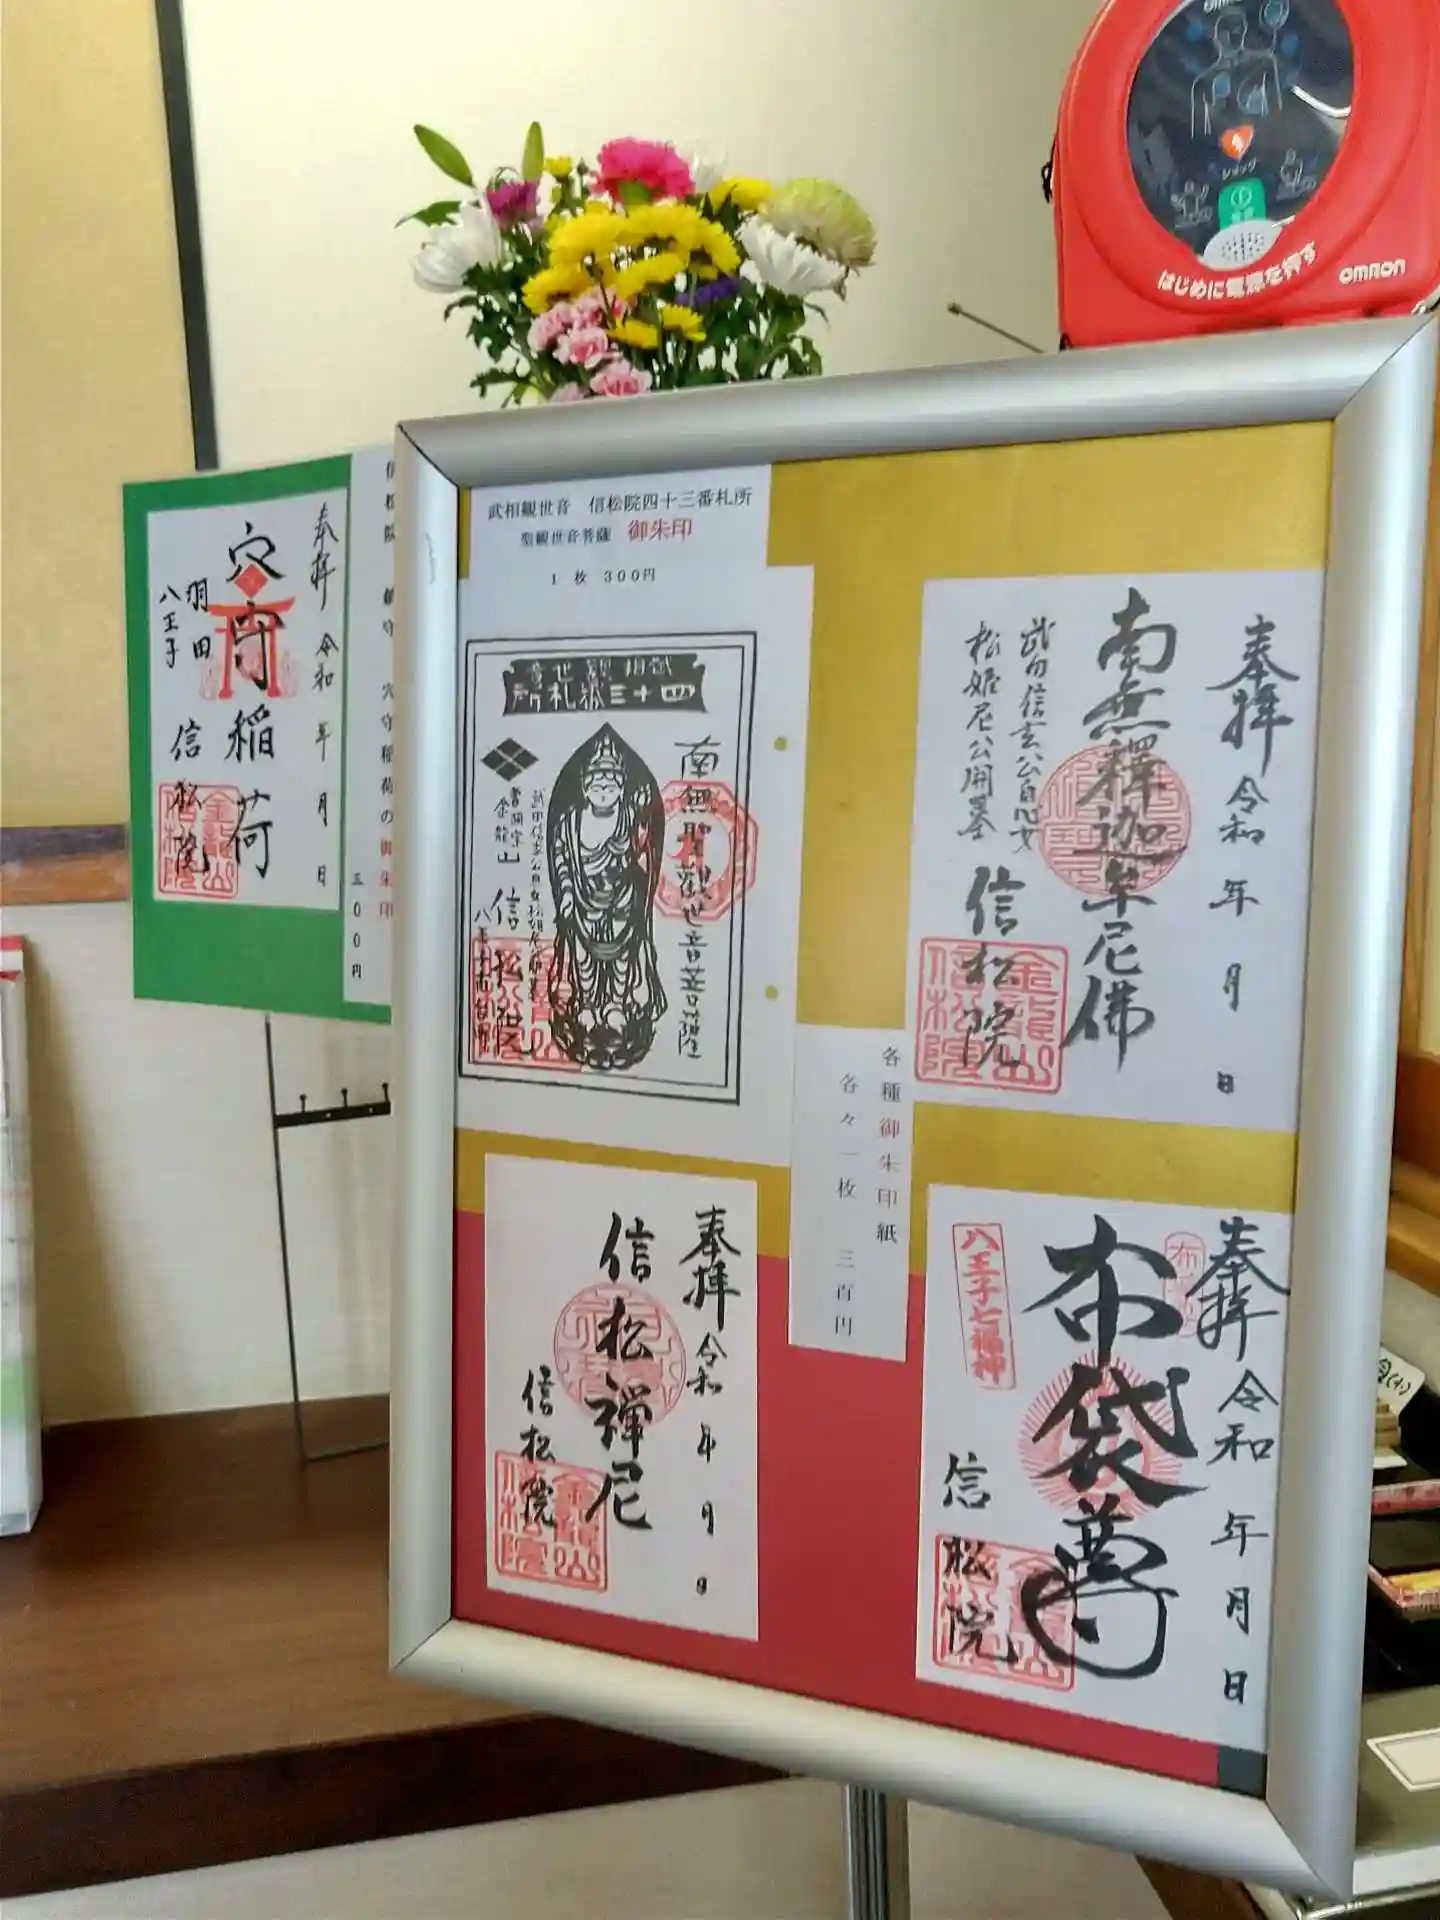 はじめに電源を押す
OMRON
ショック
武相観世音 信松院四十三番札所
聖観世音菩薩 御朱印
1枚 300円
奉拝 令和 年 月 日
南無釋迦牟尼佛
武田信玄公息女
松姫尼公開基
信松院
金龍山
信松院
武相観世音
四十三番札所
南無聖観世音菩薩
武田信玄公息女松姫尼公開基
曹洞宗
金龍山 信松院
八王子市台町
各種御朱印紙
各々一枚 三百円
奉拝 令和 年 月 日
信松禅尼
信松院
金龍山
信松院
奉拝 令和 年 月 日
布袋尊
八王子七福神
信松院
金龍山
信松院
信松院 鎮守 穴守稲荷の御朱印
三00円
奉拝 令和 年 月 日
穴守稲荷
羽田
八王子
信松院
金龍山
信松院